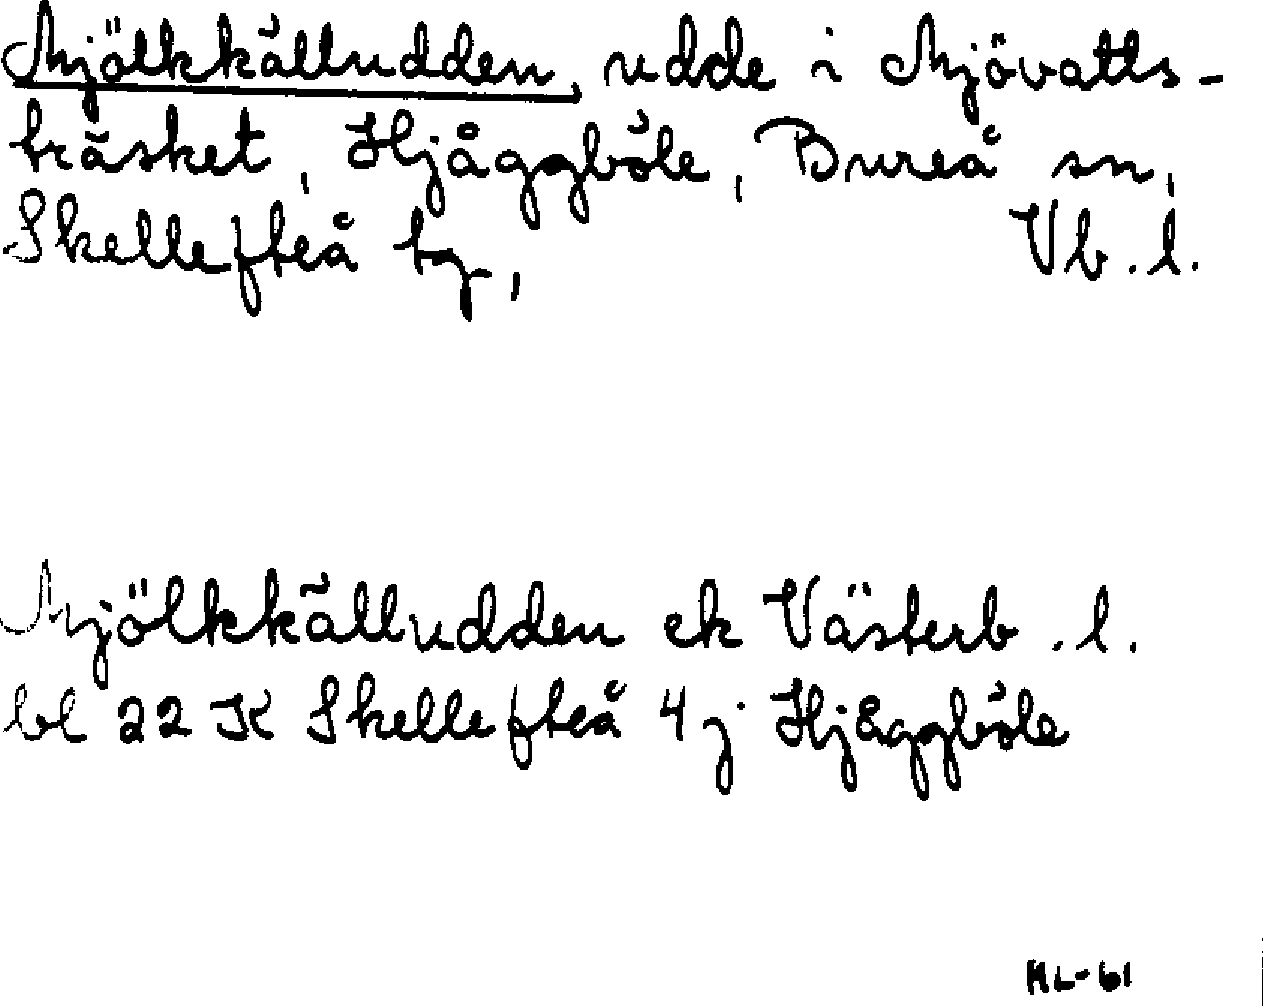 Mjölkkälludden, udde i Mjövatts-
träsket, Hjåggböle, Bureå sn,
Skellefteå tg, Vb. l.
Mjölkkälludden ek Västerb. l.
bl 22 K Skellefteå 4 j Hjåggböle
ML-61